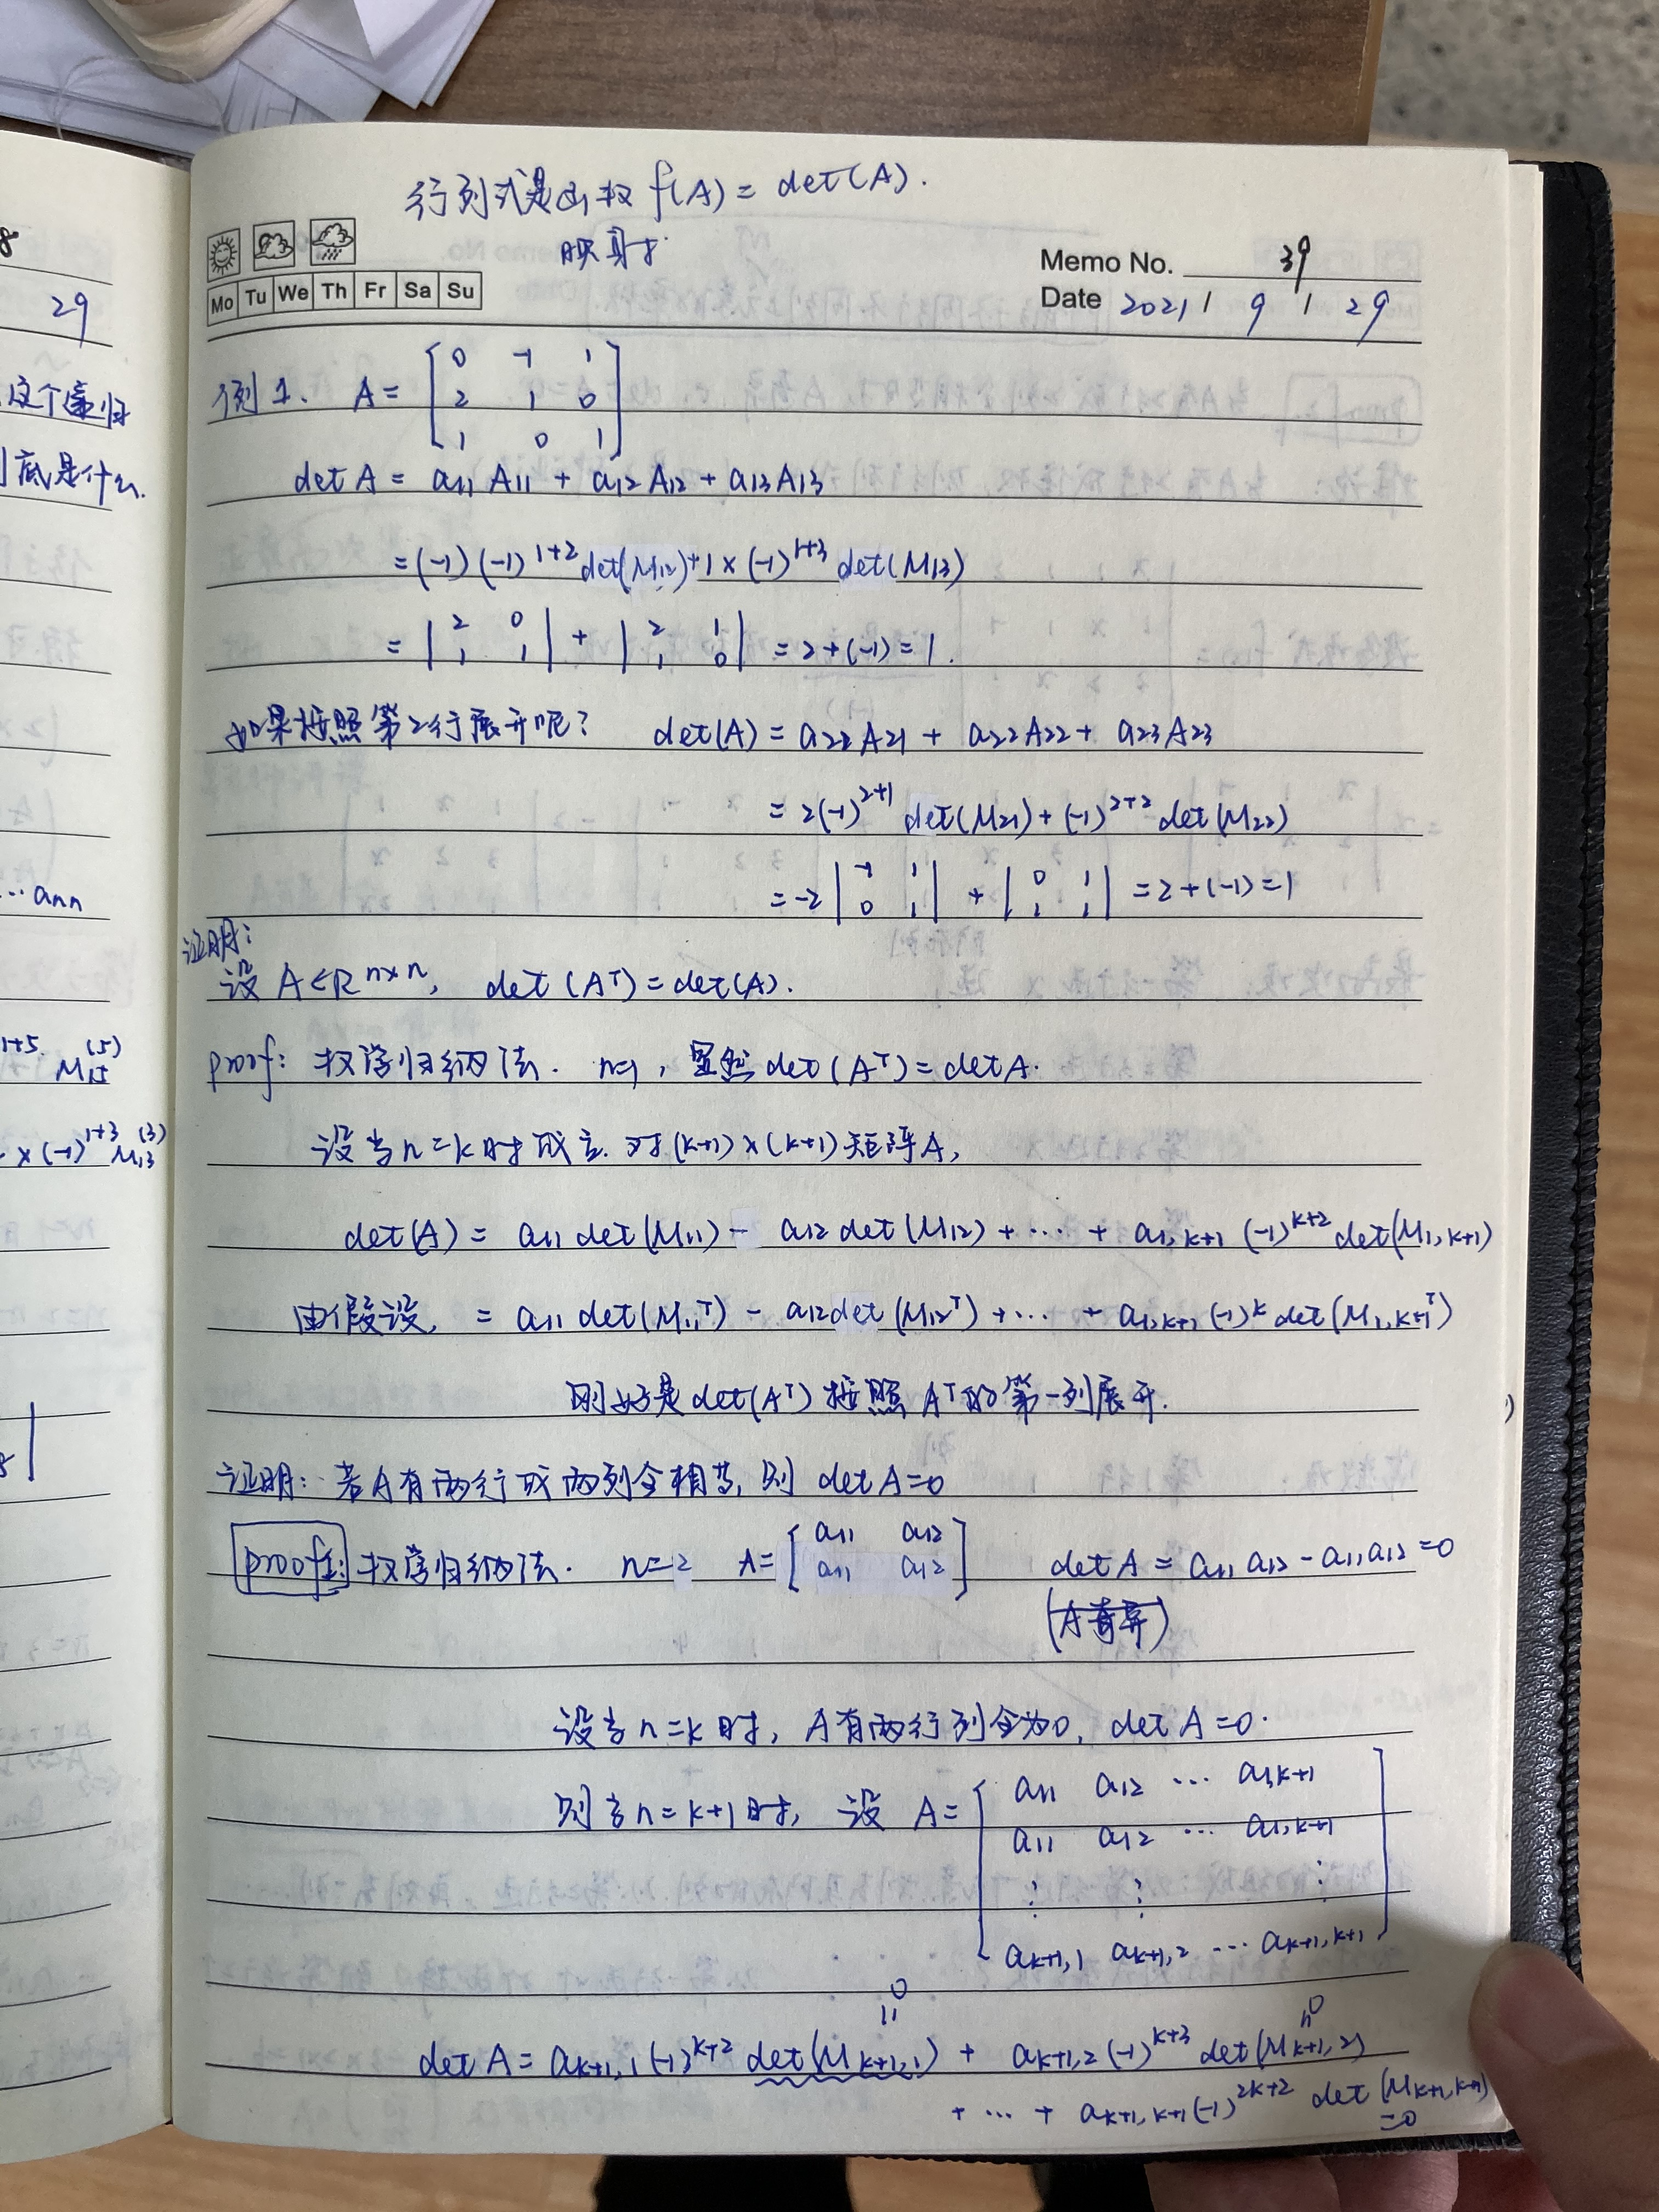 行列式是函数 f(A) = det(A).
映射
Mo Tu We Th Fr Sa Su
Memo No. 39
Date 2021 / 9 / 29
例1. A = [0 -1 1
2 1 0
1 0 1]
det A = a11 A11 + a12 A12 + a13 A13
= (-1)(-1)^{1+2} det(M12) + 1 × (-1)^{1+3} det(M13)
= |2 0; 1 1| + |2 1; 1 0| = 2+(-1) = 1.
如果按照第2行展开呢? det(A) = a22 A21 + a22 A22 + a23 A23
= 2(-1)^{2+1} det(M21) + (-1)^{2+2} det(M22)
= -2 |-1 1; 0 1| + |0 1; 1 1| = 2+(-1)=1
证明:
设 A∈R^{n×n}, det(A^T) = det(A).
proof: 数学归纳法. n=1, 显然 det(A^T) = det A.
设当 n=k 时成立. 对 (k+1)×(k+1) 矩阵A,
det(A) = a11 det(M11) - a12 det(M12) + ··· + a1,k+1 (-1)^{k+2} det(M1,k+1)
由假设, = a11 det(M11^T) - a12 det(M12^T) + ··· + a1,k+1 (-1)^k det(M1,k+1^T)
刚好是 det(A^T) 按照 A^T 的第一列展开.
证明: 若A有两行或两列全相等, 则 det A=0
proof1: 数学归纳法. n=2 A= [a11 a12
a11 a12] det A = a11 a12 - a11 a12 = 0
(A奇异)
设当 n=k 时, A有两行列全为0, det A=0.
则当 n=k+1时, 设 A= [a11 a12 ··· a1,k+1
a11 a12 ··· a1,k+1
⋮ ⋮ ⋮
ak+1,1 ak+1,2 ··· ak+1,k+1]
0
=
0
=
det A = ak+1,1 (-1)^{k+2} det(Mk+1,1) + ak+1,2 (-1)^{k+3} det(Mk+1,2)
+ ··· + ak+1,k+1 (-1)^{2k+2} det(Mk+1,k+1)
=0
29
这个
到底是什么.
··· ann
1+5 M15 (5)
× (-1)^{1+3} M13 (3)